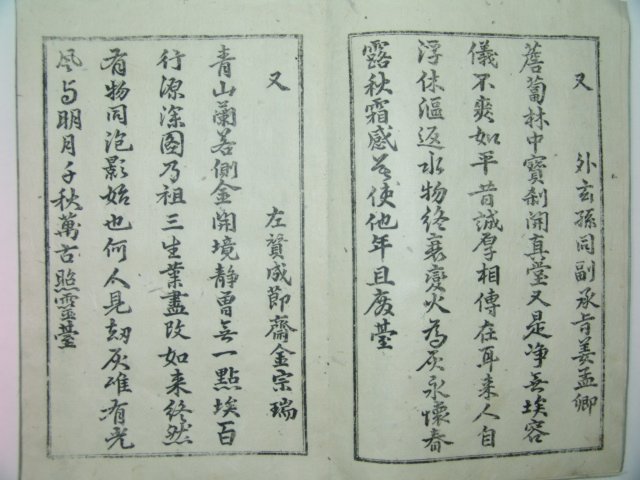 又
外玄孫同副承旨姜孟卿
薝蔔林中寶刹開真臺又是净无埃容
儀不爽如平昔誠厚相傳在耳来人自
浮休漚返水物終衰變火為灰永懷春
露秋霜感莫使他年且廢臺
又
左賛成節齋金宗瑞
青山蘭若側金開境静曾无一點埃百
行源深图乃祖三生業盡改如来終然
有物同泡影始也何人見刼灰雄有光
風与明月千秋萬古照靈臺